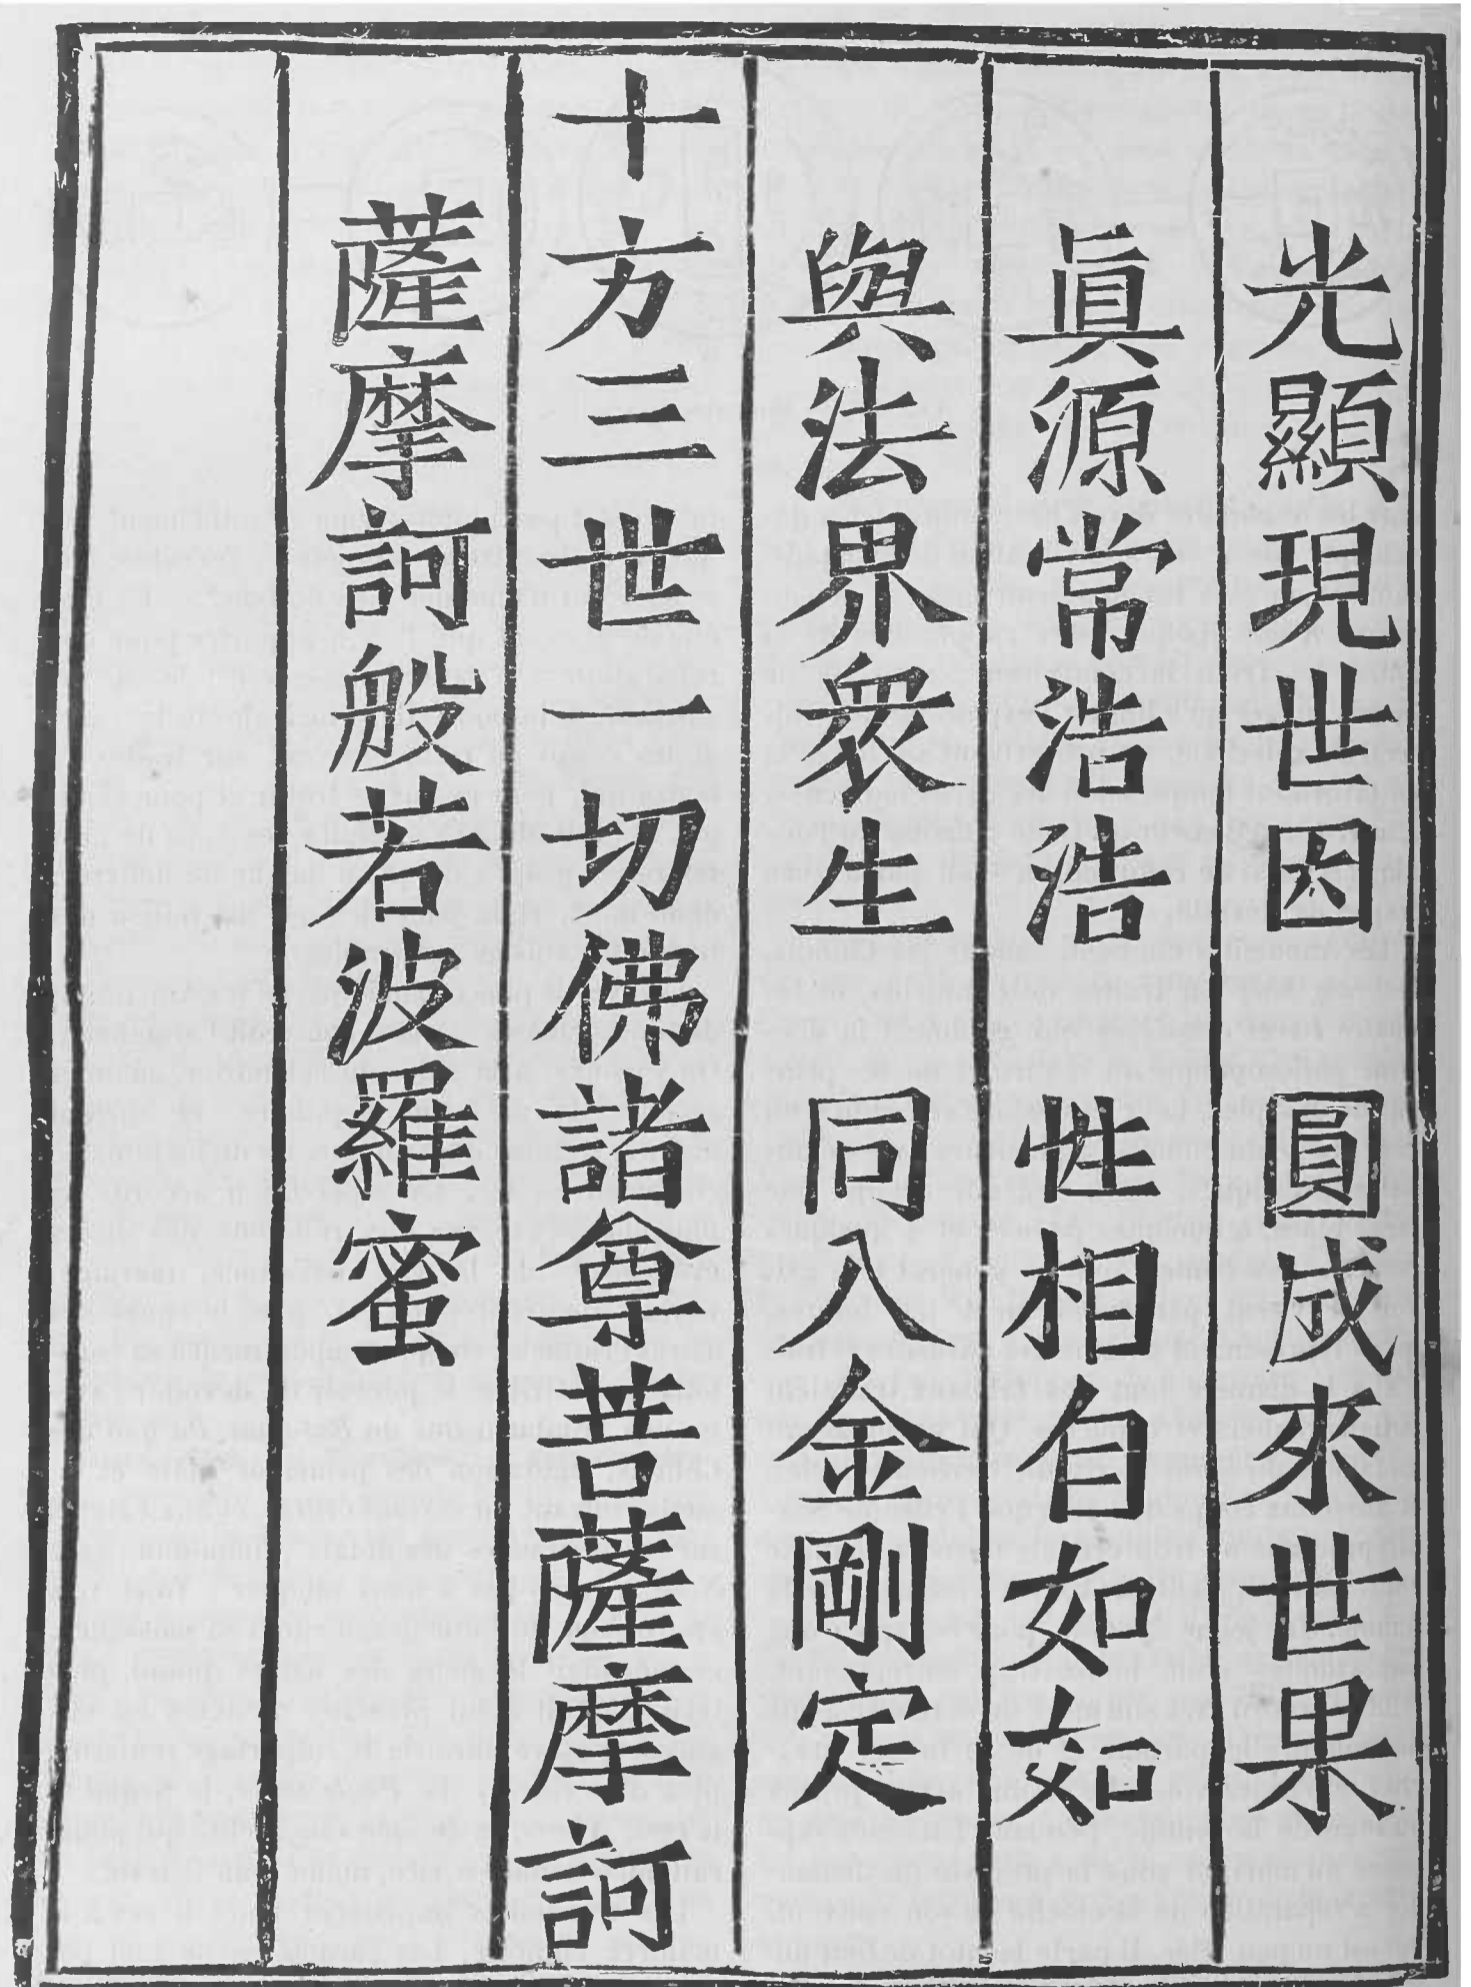 光顯現世因　圓成來世果
眞源常浩浩　性相自如如
與法界衆生　同入金剛定
十方三世一切佛諸尊菩薩摩訶
薩摩訶般若波羅蜜